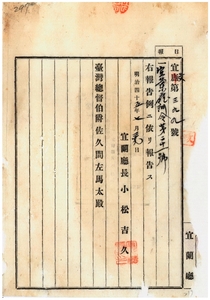 目種
宜庶第三九九號
一宜蘭廳令第二號
右報告例ニ依リ報告ス
明治四十五年一月 日
宜蘭廳長 小松吉久
臺灣總督伯爵佐久間左馬太殿
宜蘭廳